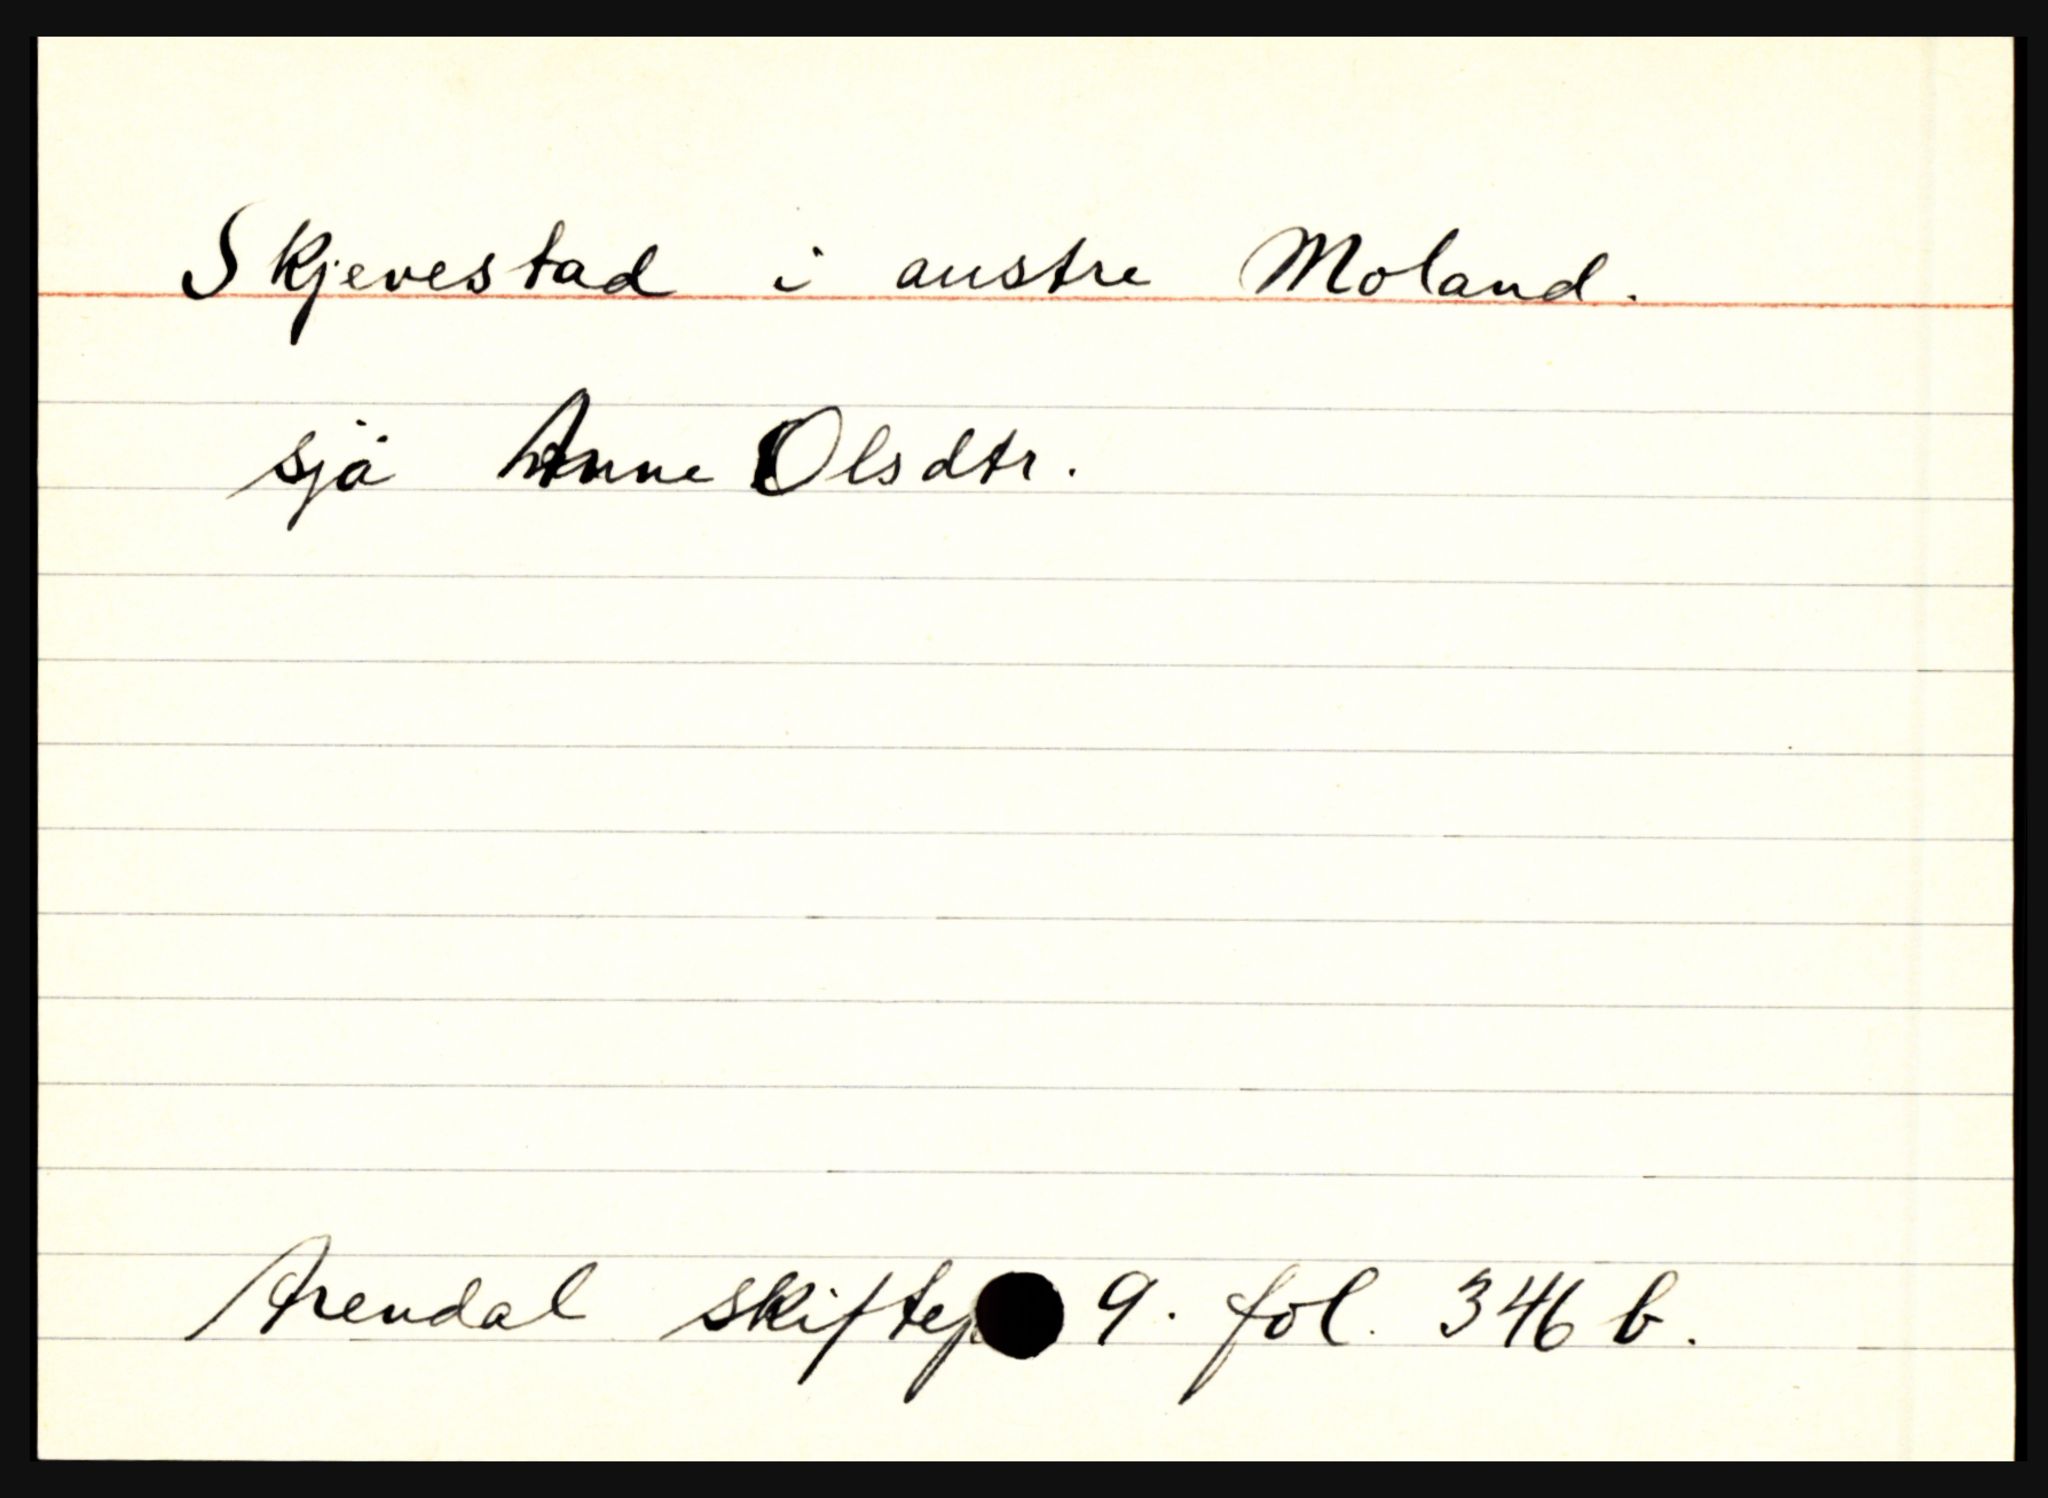 Skjevestad i austre Moland.
sjå Anne Olsdtr.
Arendal skiftep 9. fol. 346 b.